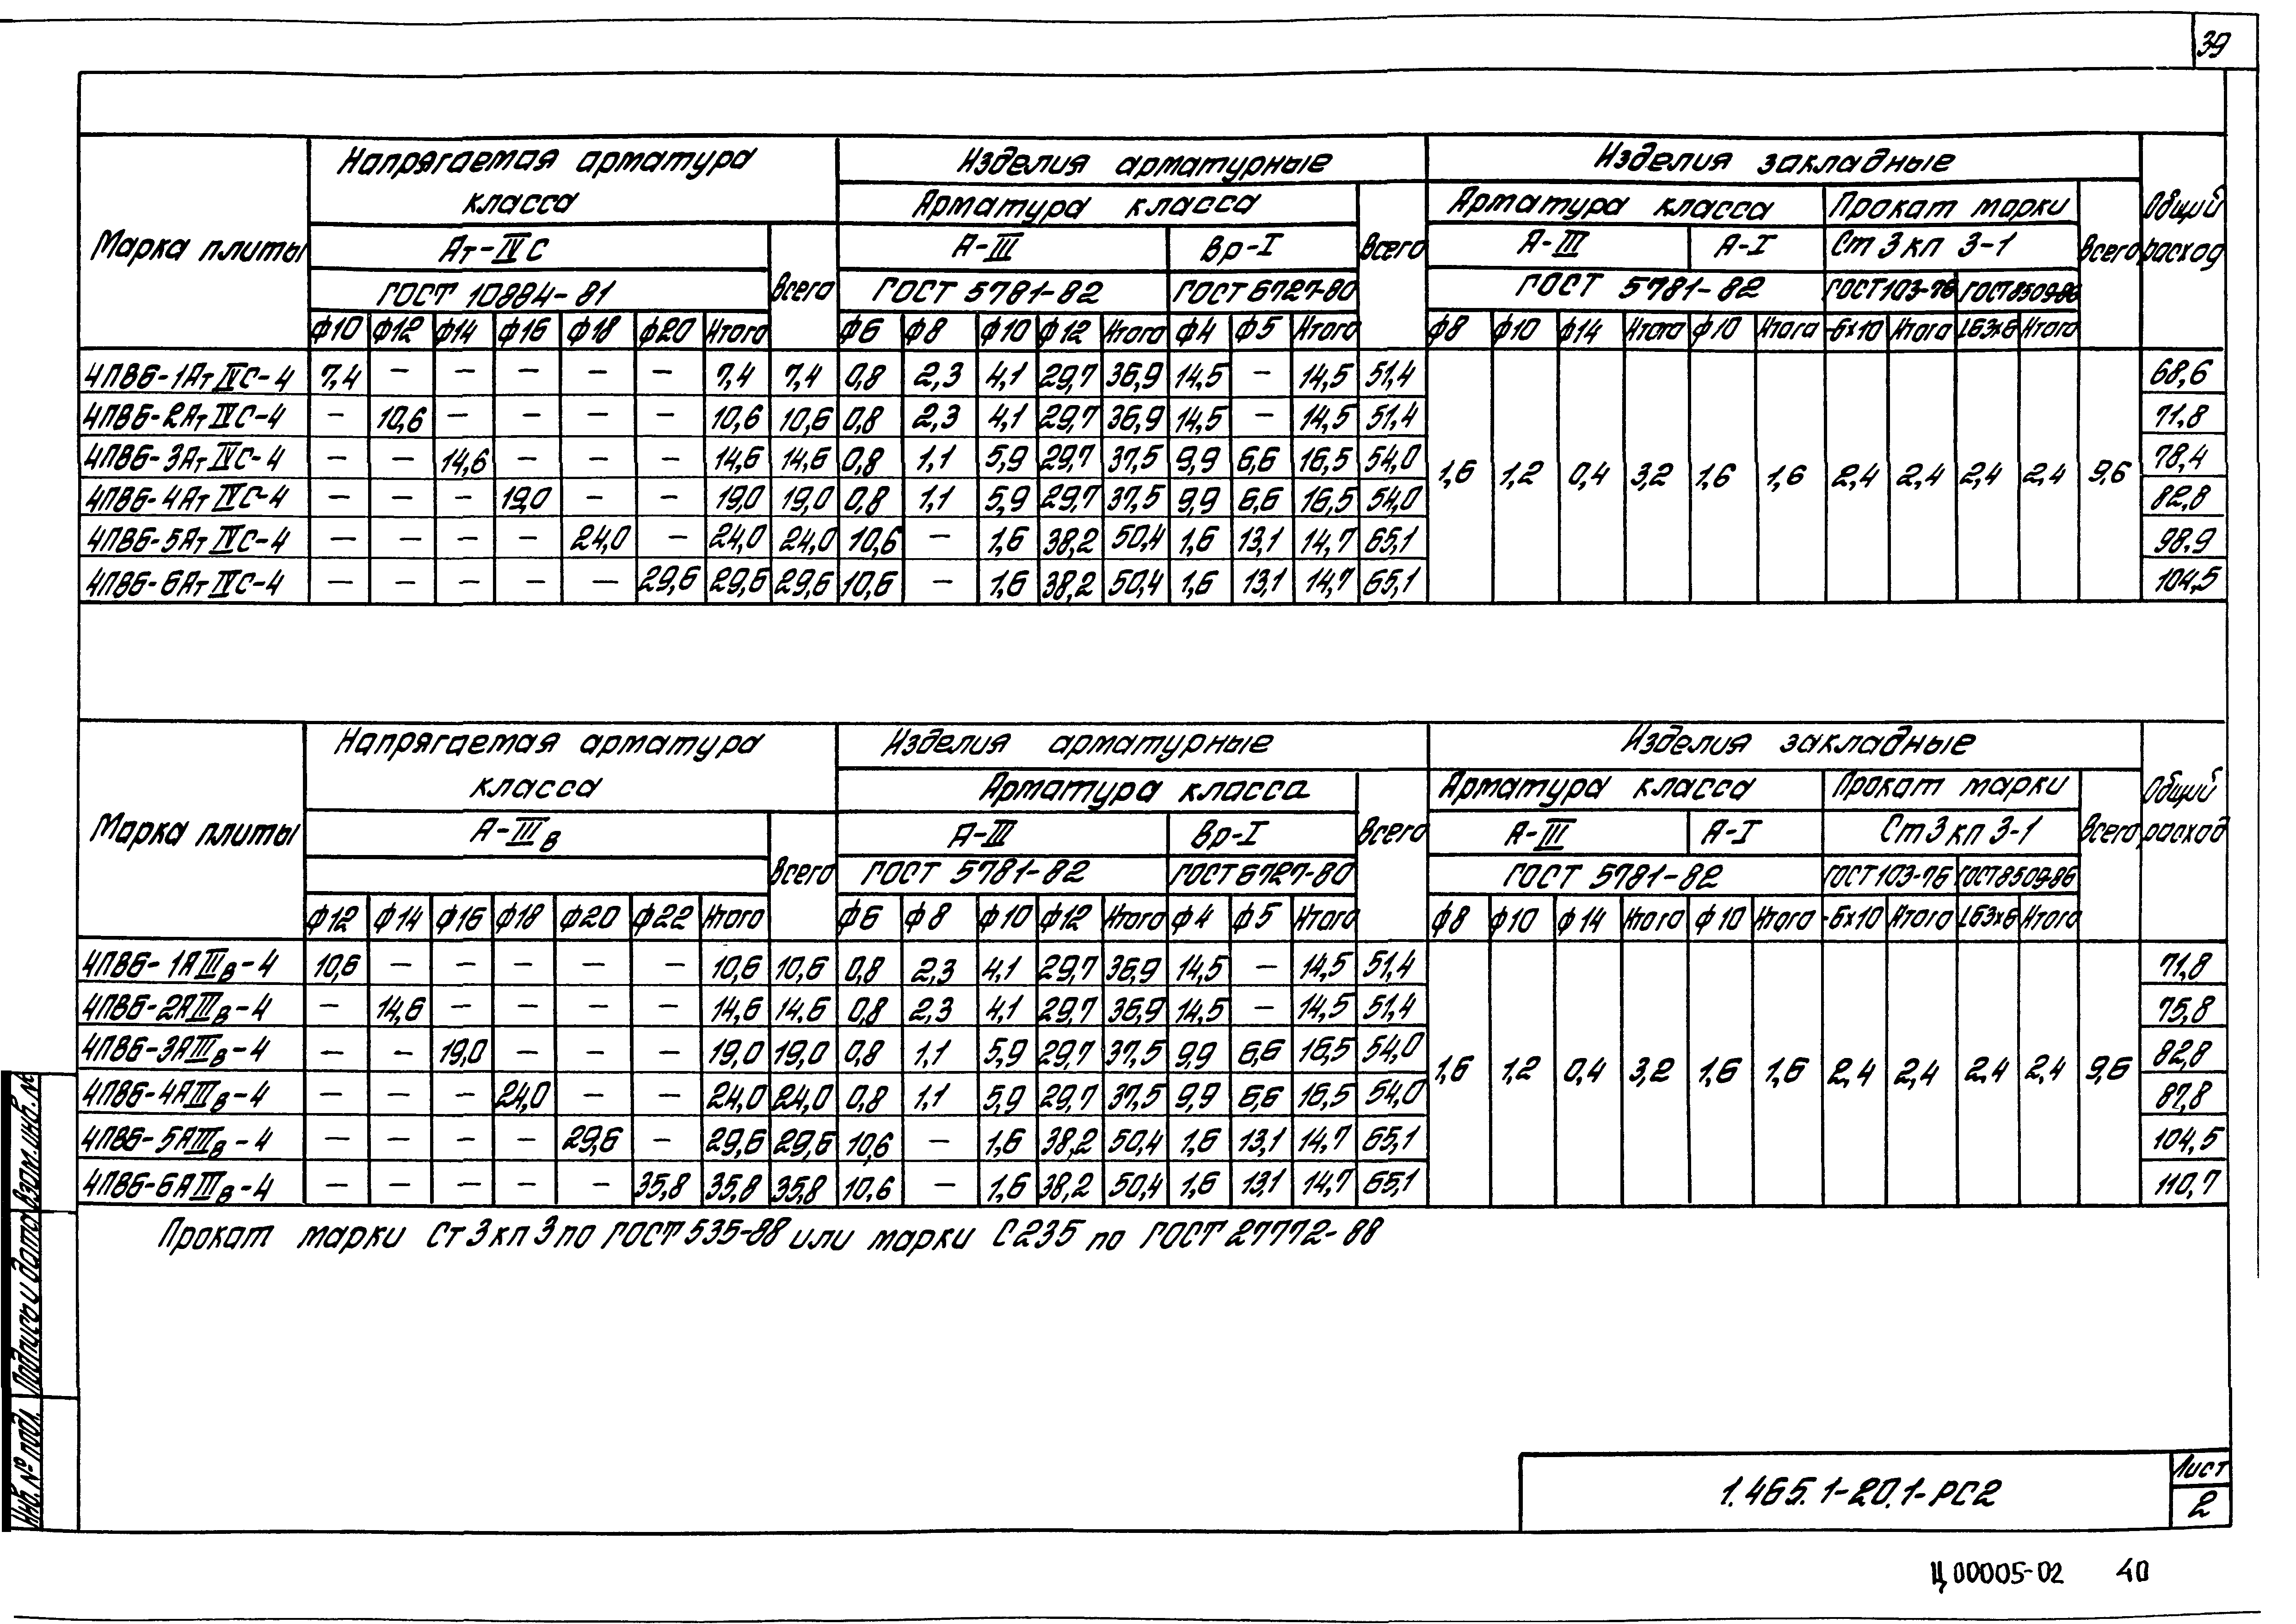 39
Марка плиты | Напрягаемая арматура класса | Изделия арматурные | Изделия закладные | Общий расход
Арматура класса | Всего | Арматура класса | Прокат марки | Всего
Ат-IVС | Всего | А-III | Вр-I | А-III | А-I | Ст3кп 3-1
ГОСТ 10884-81 | ГОСТ 5781-82 | ГОСТ 6727-80 | ГОСТ 5781-82 | ГОСТ 103-76 | ГОСТ 8509-86
ф10 | ф12 | ф14 | ф16 | ф18 | ф20 | Итого | ф6 | ф8 | ф10 | ф12 | Итого | ф4 | ф5 | Итого | ф8 | ф10 | ф14 | Итого | ф10 | Итого | -6х10 | Итого | L63х6 | Итого
4ПВ6-1АтIVС-4 | 7,4 | — | — | — | — | — | 7,4 | 7,4 | 0,8 | 2,3 | 4,1 | 29,7 | 36,9 | 14,5 | — | 14,5 | 51,4 | 68,6
4ПВ6-2АтIVС-4 | — | 10,6 | — | — | — | — | 10,6 | 10,6 | 0,8 | 2,3 | 4,1 | 29,7 | 36,9 | 14,5 | — | 14,5 | 51,4 | 71,8
4ПВ6-3АтIVС-4 | — | — | 14,6 | — | — | — | 14,6 | 14,6 | 0,8 | 1,1 | 5,9 | 29,7 | 37,5 | 9,9 | 6,6 | 16,5 | 54,0 | 78,4
1,6 | 1,2 | 0,4 | 3,2 | 1,6 | 1,6 | 2,4 | 2,4 | 2,4 | 2,4 | 9,6
4ПВ6-4АтIVС-4 | — | — | — | 19,0 | — | — | 19,0 | 19,0 | 0,8 | 1,1 | 5,9 | 29,7 | 37,5 | 9,9 | 6,6 | 16,5 | 54,0 | 82,8
4ПВ6-5АтIVС-4 | — | — | — | — | 24,0 | — | 24,0 | 24,0 | 10,6 | — | 1,6 | 38,2 | 50,4 | 1,6 | 13,1 | 14,7 | 65,1 | 98,9
4ПВ6-6АтIVС-4 | — | — | — | — | — | 29,6 | 29,6 | 29,6 | 10,6 | — | 1,6 | 38,2 | 50,4 | 1,6 | 13,1 | 14,7 | 65,1 | 104,5
Марка плиты | Напрягаемая арматура класса | Изделия арматурные | Изделия закладные | Общий расход
Арматура класса | Всего | Арматура класса | Прокат марки | Всего
А-IIIв | Всего | А-III | Вр-I | А-III | А-I | Ст3кп 3-1
ГОСТ 5781-82 | ГОСТ 6727-80 | ГОСТ 5781-82 | ГОСТ 103-76 | ГОСТ 8509-86
ф12 | ф14 | ф16 | ф18 | ф20 | ф22 | Итого | ф6 | ф8 | ф10 | ф12 | Итого | ф4 | ф5 | Итого | ф8 | ф10 | ф14 | Итого | ф10 | Итого | -6х10 | Итого | L63х6 | Итого
4ПВ6-1АIIIв-4 | 10,6 | — | — | — | — | — | 10,6 | 10,6 | 0,8 | 2,3 | 4,1 | 29,7 | 36,9 | 14,5 | — | 14,5 | 51,4 | 71,8
4ПВ6-2АIIIв-4 | — | 14,6 | — | — | — | — | 14,6 | 14,6 | 0,8 | 2,3 | 4,1 | 29,7 | 36,9 | 14,5 | — | 14,5 | 51,4 | 75,8
4ПВ6-3АIIIв-4 | — | — | 19,0 | — | — | — | 19,0 | 19,0 | 0,8 | 1,1 | 5,9 | 29,7 | 37,5 | 9,9 | 6,6 | 16,5 | 54,0 | 82,8
1,6 | 1,2 | 0,4 | 3,2 | 1,6 | 1,6 | 2,4 | 2,4 | 2,4 | 2,4 | 9,6
4ПВ6-4АIIIв-4 | — | — | — | 24,0 | — | — | 24,0 | 24,0 | 0,8 | 1,1 | 5,9 | 29,7 | 37,5 | 9,9 | 6,6 | 16,5 | 54,0 | 87,8
4ПВ6-5АIIIв-4 | — | — | — | — | 29,6 | — | 29,6 | 29,6 | 10,6 | — | 1,6 | 38,2 | 50,4 | 1,6 | 13,1 | 14,7 | 65,1 | 104,5
4ПВ6-6АIIIв-4 | — | — | — | — | — | 35,8 | 35,8 | 35,8 | 10,6 | — | 1,6 | 38,2 | 50,4 | 1,6 | 13,1 | 14,7 | 65,1 | 110,7
Прокат марки Ст3кп3 по ГОСТ 535-88 или марки С235 по ГОСТ 27772-88
Инв. № подл. | Подпись и дата | Взам. инв. №
1.465.1-20.1-РС2
Лист
2
Ц00005-02 40